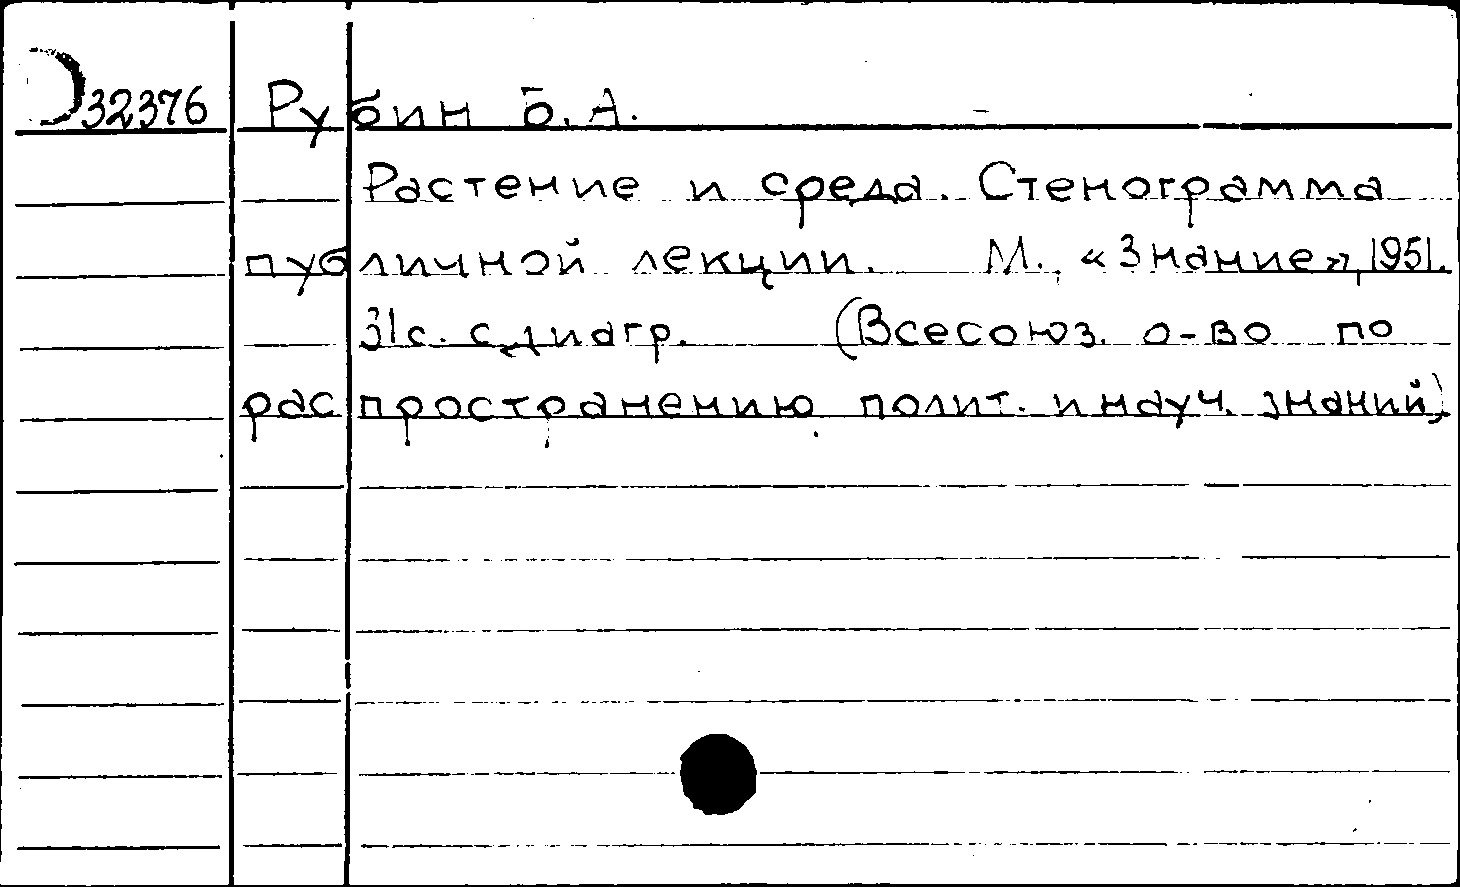 32376 Рубин Б. А.
Растение и среда. Стенограмма
публичной лекции. М., «Знание», 1951.
31с. с диагр. (Всесоюз. о-во по
распространению полит. и науч. знаний)